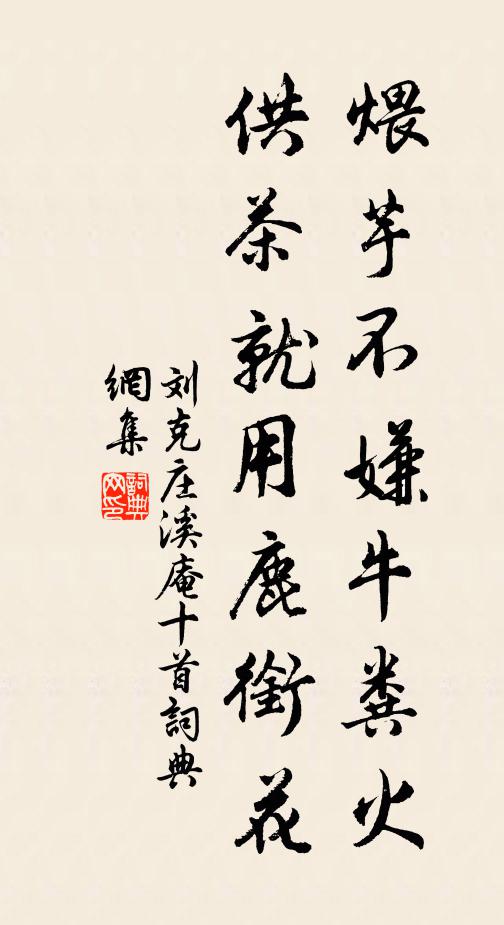 煨芋不嫌牛糞火
供茶就用鹿銜花
刘克庄溪庵十首詞典
網集
詞典
网印